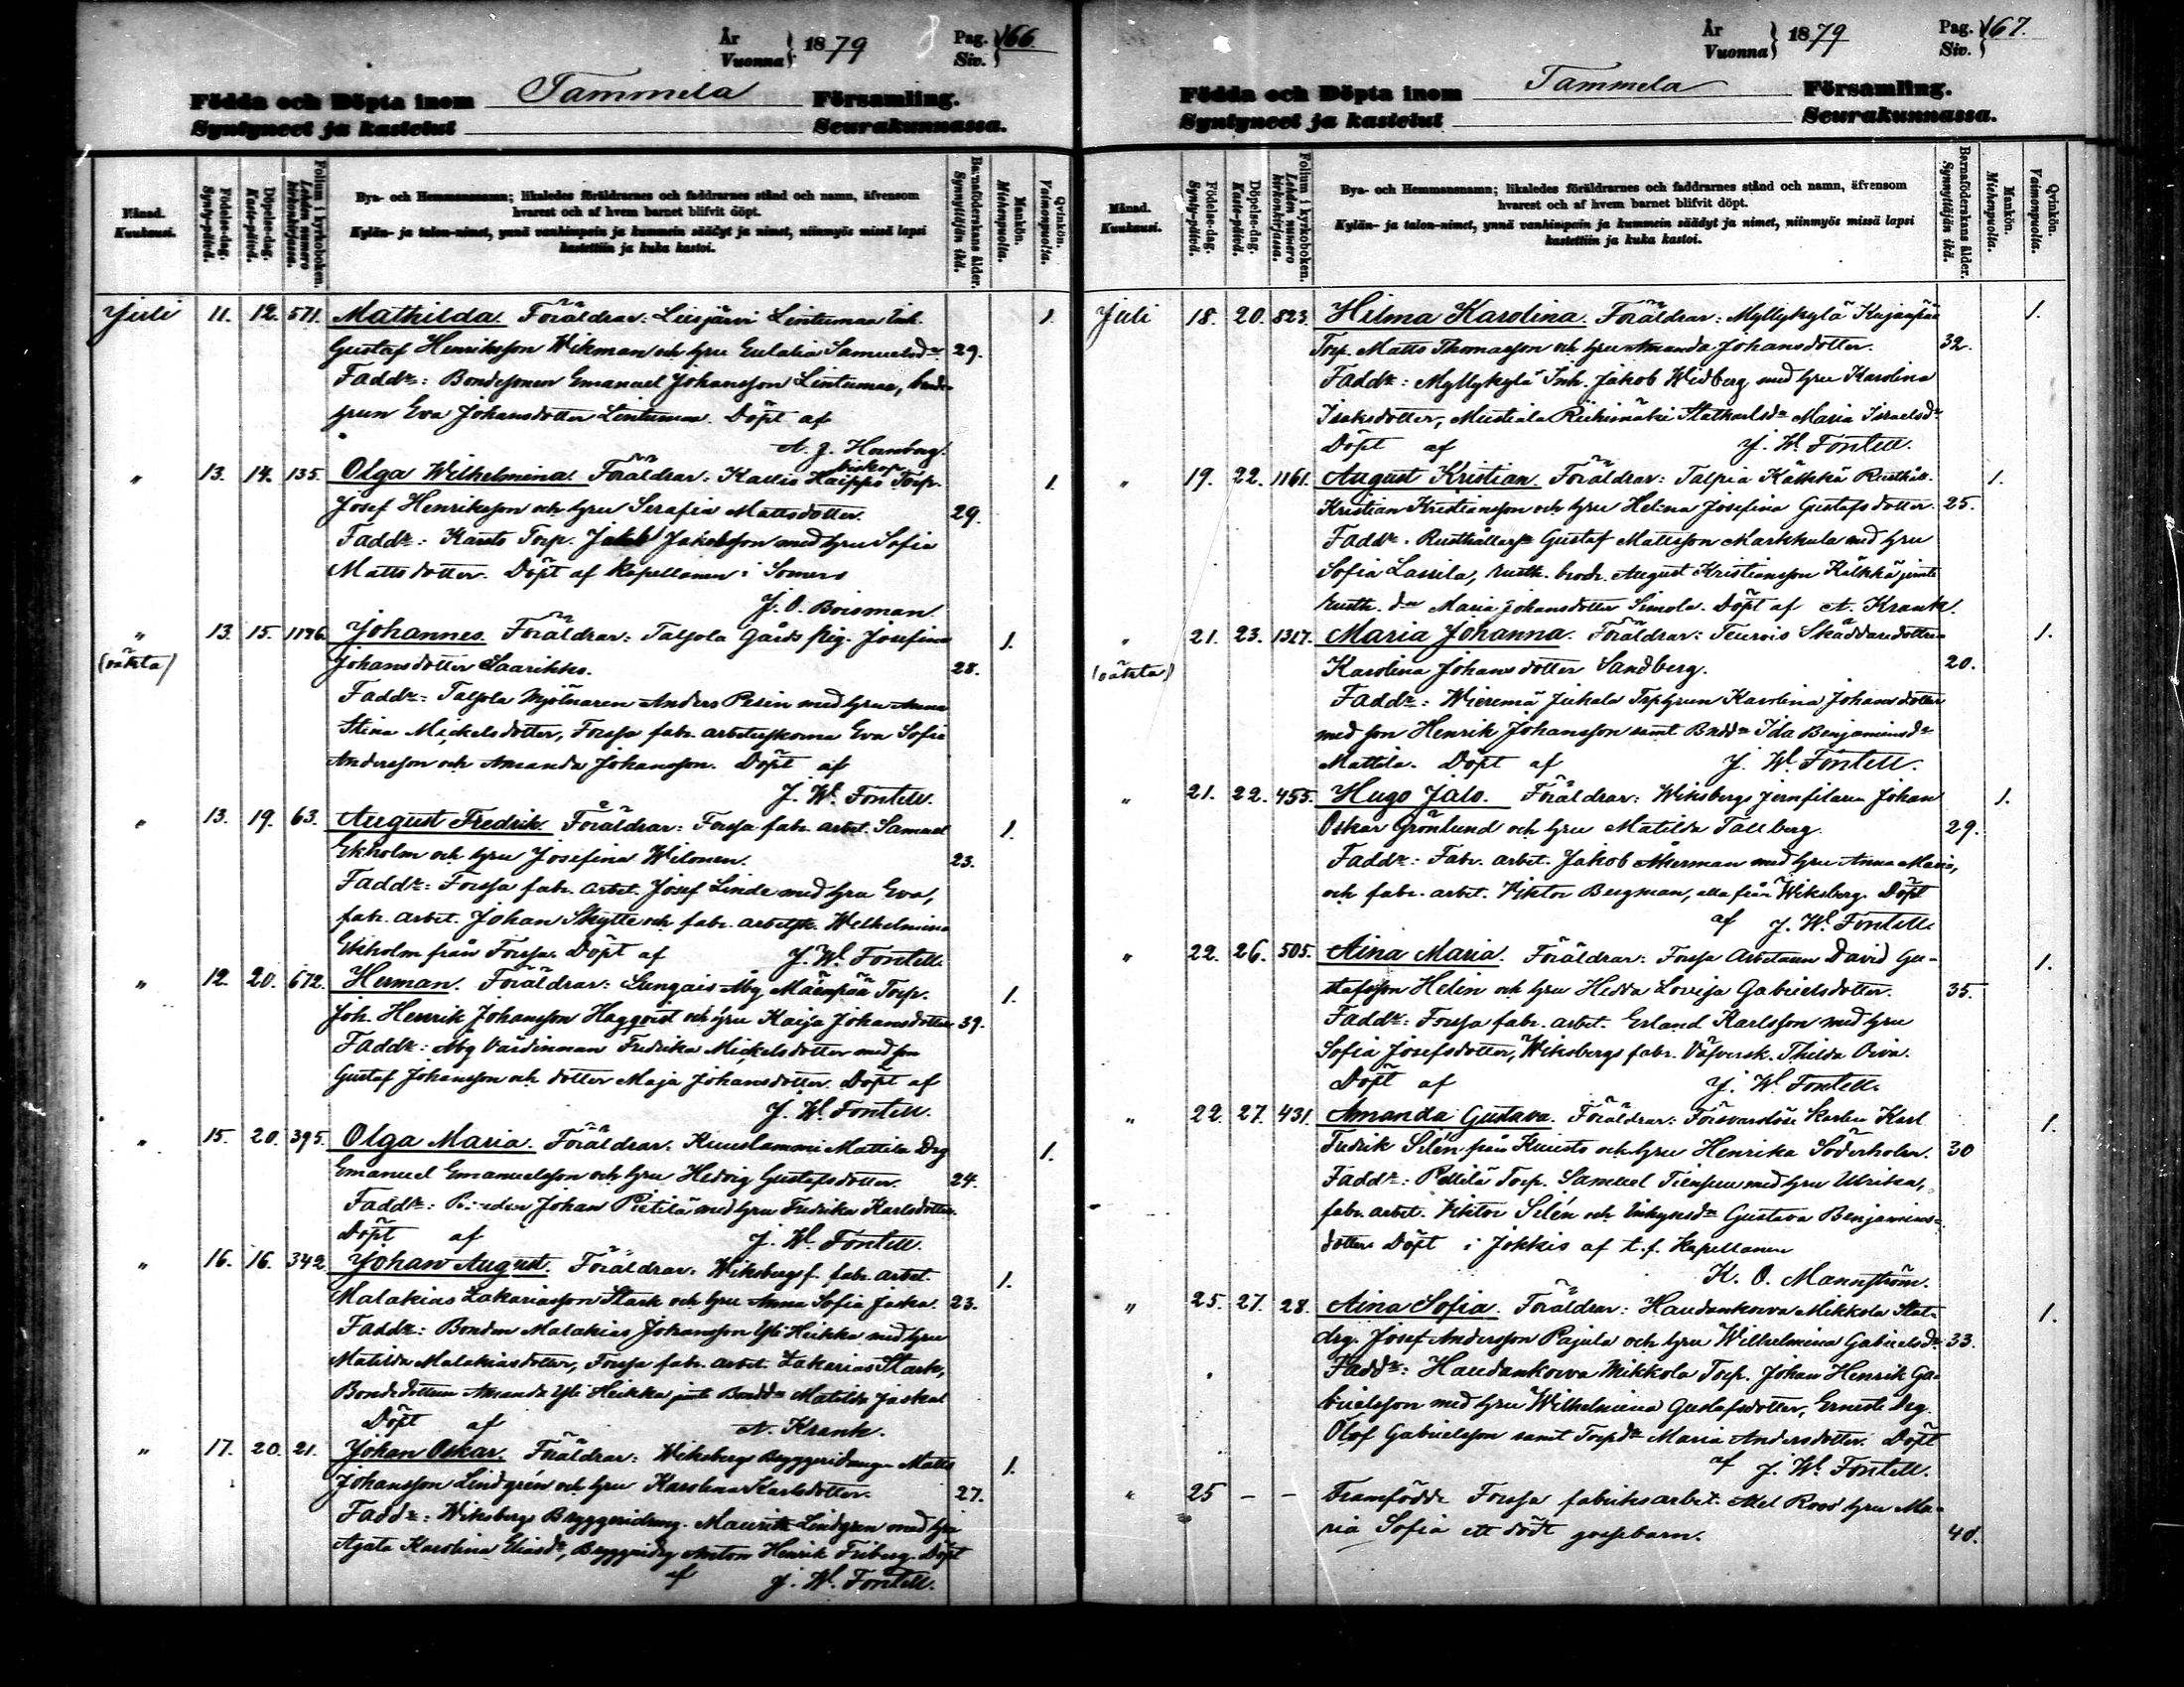 År
Vuonna } 1879
Pag.
Siv. } 166.
Födda och Döpta inom Tammela Församling.
Syntyneet ja kastetut Seurakunnassa.
Månad.
Kuukausi.
Födelse-dag.
Synty-päivä.
Döpelse-dag.
Kaste-päivä.
Folium i kyrkoboken.
Lehden numero kirkonkirjassa.
Bya- och Hemmansnamn; likaledes föräldrarnes och faddrarnes stånd och namn, äfvensom
hvarest och af hvem barnet blifvit döpt.
Kylän- ja talon-nimet, ynnä vanhimpain ja kummein säädyt ja nimet, niinmyös missä lapsi
kastettiin ja kuka kastoi.
Barnaföderskans ålder.
Synnyttäjän ikä.
Mankön.
Miehenpuolia.
Qvinkön.
Vaimonpuolia.
Juli 11. 12. 571. Mathilda. Föräldrar: Liesjärvi Lintumaa Inh. 1.
Gustaf Henriksson Wikman och hru Eulalia Samuelsdr 29.
Faddr: Bondesonen Emanuel Johansson Lintumaa, bonde-
hrun Eva Johansdotter Lintumaa. Döpt af
A. J. Hornborg.
biskop
" 13. 14. 135. Olga Wilhelmina. Föräldrar: Kallio Haippo Torp. 1.
Josef Henriksson och hru Serafia Mattsdotter. 29.
Faddr: Torp. Jakob Jakobsson med hru Sofia
Mattsdotter. Döpt af Kapellanen i Somero
J. O. Boisman.
" 13. 15. 1196. Johannes. Föräldrar: Talpola Gårds pig. Josefina 1.
(oäkta) Johansdotter Saarikko. 28.
Faddr: Talpola Mjölnaren Anders Pesin med hru Anna
Stina Mickelsdotter, Forssa fabr. arbeterskorna Eva Sofia
Andersson och Amanda Johansson. Döpt af
J. W. Fontell.
" 13. 19. 63. August Fredrik. Föräldrar: Forssa fabr. arbet. Samuel 1.
Ekholm och hru Josefina Wilonen. 23.
Faddr: Forssa fabr. arbet. Josef Linde med hru Eva,
fabr. arbet. Johan Skytte och fabr. arbetsk. Wilhelmina
Ekholm från Forssa. Döpt af J. W. Fontell.
" 12. 20. 672. Herman. Föräldrar: Lungais Aby Mäenpää Torp. 1.
Joh. Henrik Johansson Hagqvist och hru Kaija Johansdotter 39.
Faddr: Aby Värdinnan Fredrika Mickelsdotter med son
Gustaf Johansson och dotter Maja Johansdotter. Döpt af
J. W. Fontell.
" 15. 20. 395. Olga Maria. Föräldrar: Kuuslammi Mattila Drg 1.
Emanuel Emanuelsson och hru Hedvig Gustafsdotter. 24.
Faddr: Johan Pietilä med hru Fredrika Karlsdotter.
Döpt af J. W. Fontell.
" 16. 16. 342. Johan August. Föräldrar: Wiksbergs f. fabr. arbet. 1.
Malakias Zakariasson Stark och hru Anna Sofia Jaska. 23.
Faddr: Bonden Malakias Johansson Yli Heikka med hru
Matilda Malakiasdotter, Forssa fabr. arbet. Zakarias Stark,
Bondedottren Amanda Yli Heikka jemte Bondr Matilda Jaska
Döpt af A. Krank.
" 17. 20. 21. Johan Oskar. Föräldrar: Wiksbergs Bryggeridreng Matts 1.
Johansson Lindgrén och hru Karolina Karlsdotter. 27.
Faddr: Wiksbergs Bryggeridreng. Maurits Lindgren med hru
Agata Karolina Eliasdr, Bryggeridrg Anton Henrik Friberg. Döpt
af J. W. Fontell.
År
Vuonna } 1879
Pag.
Siv. } 167.
Födda och Döpta inom Tammela Församling.
Syntyneet ja kastetut Seurakunnassa.
Månad.
Kuukausi.
Födelse-dag.
Synty-päivä.
Döpelse-dag.
Kaste-päivä.
Folium i kyrkoboken.
Lehden numero kirkonkirjassa.
Bya- och Hemmansnamn; likaledes föräldrarnes och faddrarnes stånd och namn, äfvensom
hvarest och af hvem barnet blifvit döpt.
Kylän- ja talon-nimet, ynnä vanhimpain ja kummein säädyt ja nimet, niinmyös missä lapsi
kastettiin ja kuka kastoi.
Barnaföderskans ålder.
Synnyttäjän ikä.
Mankön.
Miehenpuolia.
Qvinkön.
Vaimonpuolia.
Juli 18. 20. 823. Hilma Karolina. Föräldrar: Myllykylä Kujanpää 1.
Torp. Matts Thomasson och hru Amanda Johansdotter. 32.
Faddr: Myllykylä Inh. Jakob Widberg med hru Karolina
Isaksdotter, Mustiala Riihimäki Statkarlsdr Maria Israelsdr
Döpt af J. W. Fontell.
" 19. 22. 1161. August Kristian. Föräldrar: Talpia Kälkkä Rusthåll. 1.
Kristian Kristiansson och hru Helena Josefina Gustafsdotter. 25.
Faddr. Rusthållars Gustaf Mattsson Markkula med hru
Sofia Lassila, rusth. brodr. August Kristiansson Kälkkä jemte
rusth. dr Maria Johansdotter Simola. Döpt af A. Krank.
" 21. 23. 1317. Maria Johanna. Föräldrar: Teuro Skräddaredottren 1.
(oäkta) Karolina Johansdotter Sandberg. 20.
Faddr: Wieremä Juhala Torphrun Karolina Johansdotter
med son Henrik Johansson samt Bndr Ida Benjaminsdr
Mattila. Döpt af J. W. Fontell.
" 21. 22. 455. Hugo Jalo. Föräldrar: Wiksbergs jernfilaren Johan 1.
Oskar Grönlund och hru Matilda Tallberg. 29.
Faddr: Fabr. arbet. Jakob Åkerman med hru Anna Maria,
och fabr. arbet. Viktor Bergman, alla från Wiksberg. Döpt
af J. W. Fontell.
" 22. 26. 505. Aina Maria. Föräldrar: Forssa Arbetaren David Gu- 1.
stafsson Helin och hru Hedda Lovisa Gabrielsdotter. 35.
Faddr: Forssa fabr. arbet. Erland Karlsson med hru
Sofia Josefsdotter, Wiksbergs fabr. Väfversk. Thilda Oiva.
Döpt af J. W. Fontell.
" 22. 27. 431. Amanda Gustava. Föräldrar: Försvarslöse Karlen Karl 1.
Fredrik Silén från Kuusto och hru Henrika Söderholm. 30
Faddr: Pellilä Torp. Samuel med hru Ulrika,
fabr. arbet. Viktor Silén och Gustava Benjamins-
dotter. Döpt i Jokkis af t.f. Kapellanen
K. O. Mannström.
" 25. 27. 28. Aina Sofia. Föräldrar: Haudankorva Mikkola Stat- 1.
drg. Josef Andersson Pajula och hru Wilhelmina Gabrielsdr 33.
Faddr: Haudankorva Mikkola Torp. Johan Henrik Ga-
brielsson med hru Wilhelmina Gustafsdotter, Ernesti Drg.
Olof Gabrielsson samt Torpdr Maria Andersdotter. Döpt
af J. W. Fontell.
" 25 – – Framfödde Forssa fabriksarbet. Axel Roos' hru Ma-
ria Sofia ett dödt gossebarn. 40.